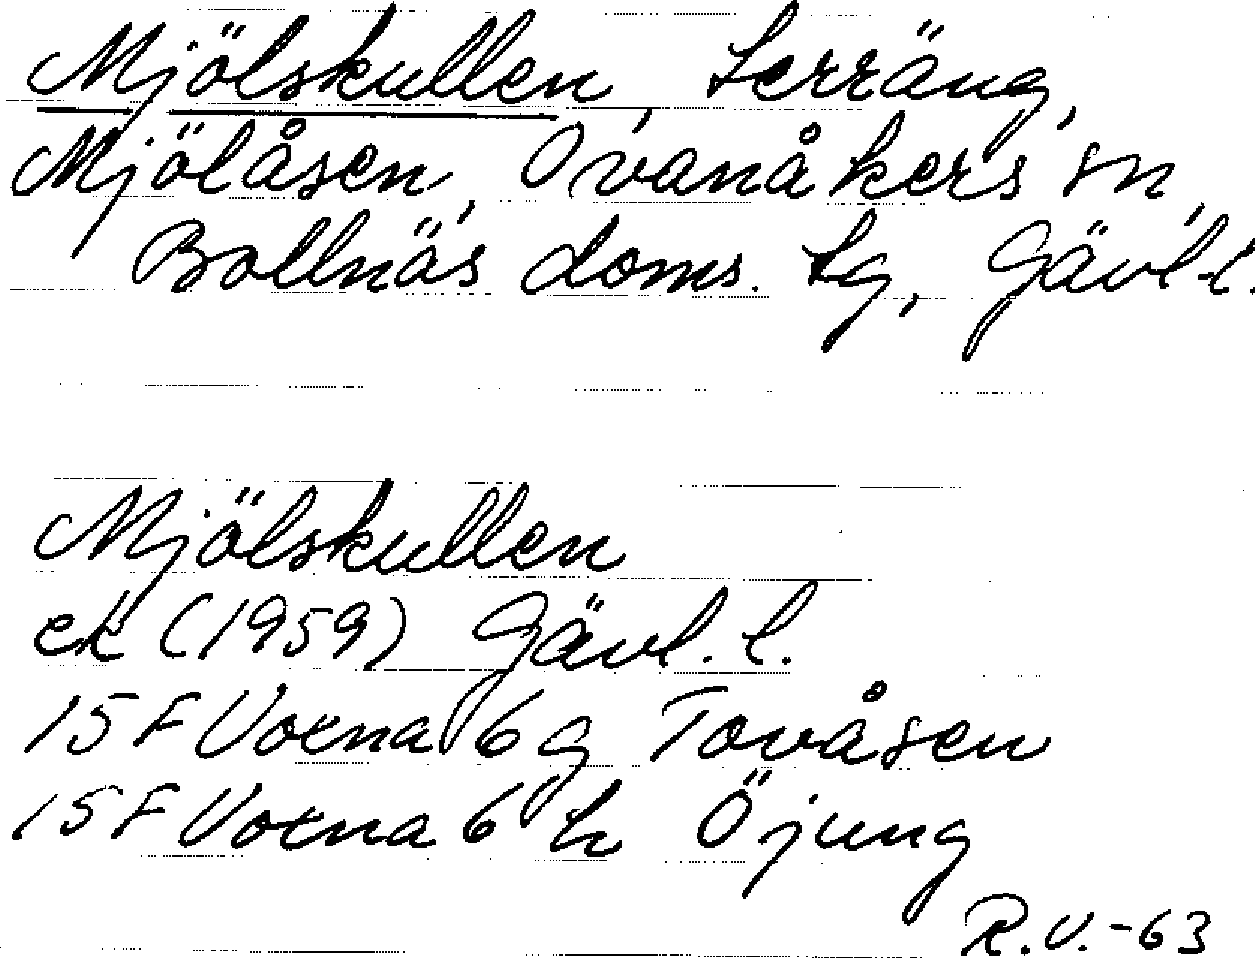 Mjölskullen, terräng,
Mjölåsen, Ovanåkers sn,
Bollnäs doms. tg, Gävl.l.
Mjölskullen
ek (1959) Gävl. l.
15 F Voxna 6 g Tovåsen
15 F Voxna 6 h Öjung
R.V.-63